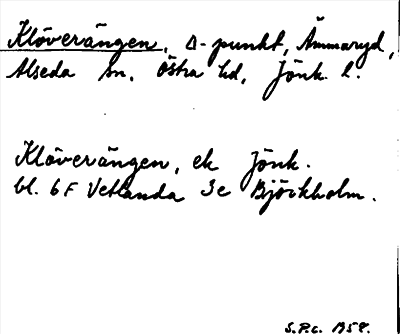 Klöverängen, Δ-punkt, Ämmaryd,
Alseda sn, Östra hd, Jönk. l.
Klöverängen, ek Jönk.
bl. 6F Vetlanda 3e Björkholm.
S.P.c. 1958.